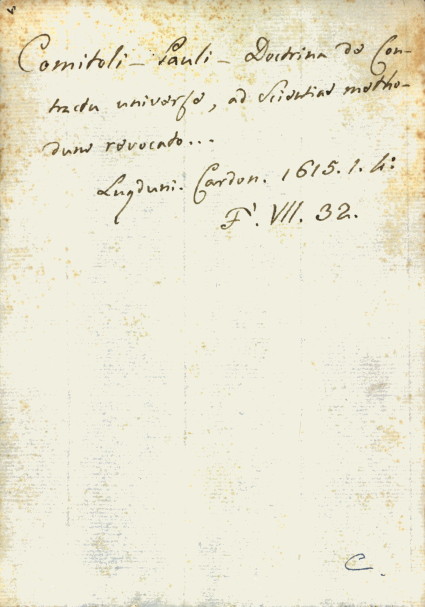 Comitoli - Pauli - Doctrina de Con-
tractu universe, ad Scientiae metho-
dum revocato...
Lugduni. Cardon. 1615. 1. 4:
F. VII. 32.
C